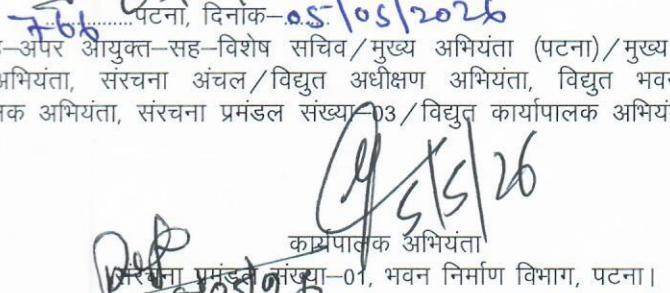 766 पटना, दिनांक-05/05/2026
-अपर आयुक्त-सह-विशेष सचिव/मुख्य अभियंता (पटना)/मुख्य
अभियंता, संरचना अंचल/विद्युत अधीक्षण अभियंता, विद्युत भव
अभियंता, संरचना प्रमंडल संख्या-03/विद्युत कार्यापालक अभियं
5/5/26
कार्यपालक अभियंता
संरचना प्रमंडल संख्या-01, भवन निर्माण विभाग, पटना।